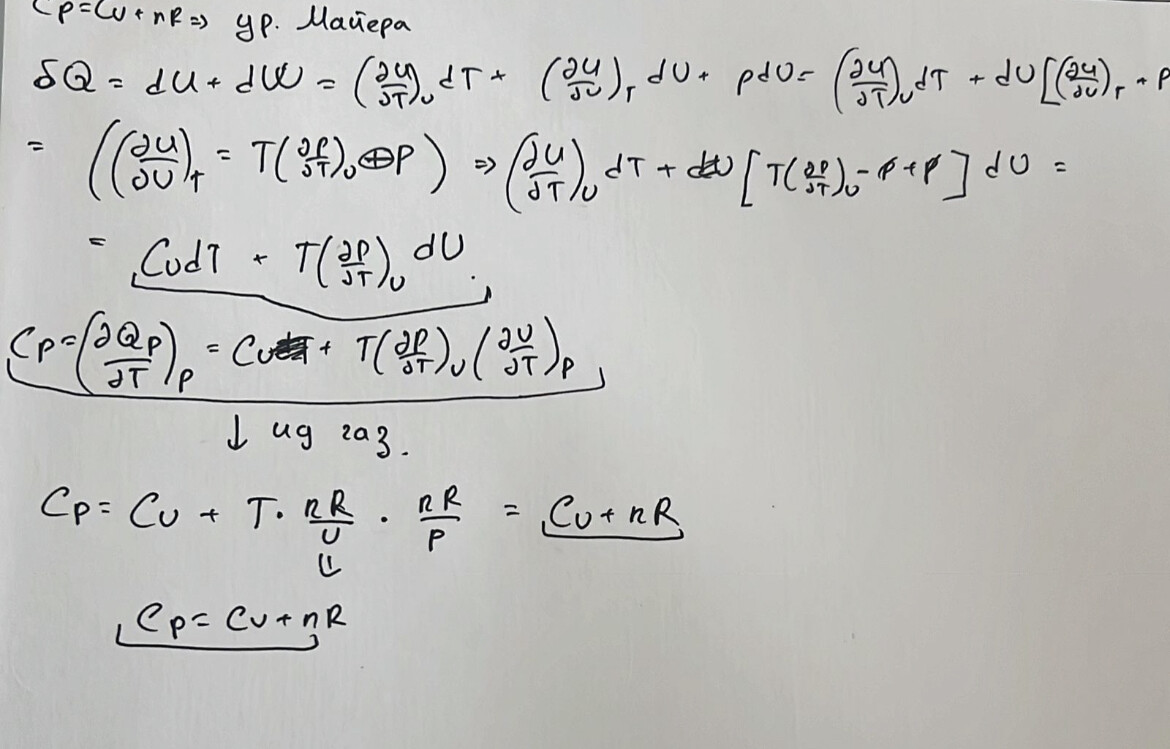 Cp=Cv+nR=> ур. Майера
δQ = dU + dW = (∂U/∂T)_v dT + (∂U/∂v)_T dv + pdv = (∂U/∂T)_v dT + dv[(∂U/∂v)_T + p
= ((∂U/∂v)_T = T(∂p/∂T)_v ⊕ p) => (∂U/∂T)_v dT + [T(∂p/∂T)_v - p + p] dv =
= CvdT + T(∂p/∂T)_v dv.
Cp=(∂Qp/∂T)_p = Cv + T(∂p/∂T)_v (∂v/∂T)_p
↓ ид газ.
Cp = Cv + T · nR/v · nR/p = Cv + nR
⇓
Cp = Cv + nR